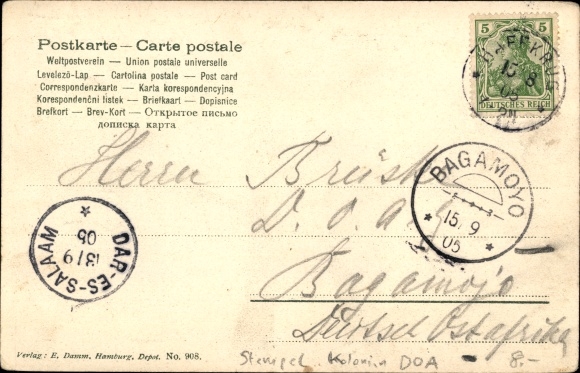 Postkarte — Carte postale
Weltpostverein — Union postale universelle
Levelező-Lap — Cartolina postale — Post card
Correspondenzkarte — Karta korespondencyjna
Korespondenční lístek — Briefkaart — Dopisnice
Brefkort — Brev-Kort — Открытое письмо
дописка карта
5 5
DEUTSCHES REICH
15 8
05
Herrn
D. O. A. G.
Bagamojo
Deutsch Ostafrika
BAGAMOYO
15/9
05
DAR-ES-SALAAM
13/9
05
Verlag: E. Damm, Hamburg, Depot. No. 908.
Stempel Kolonien DOA — 8.-